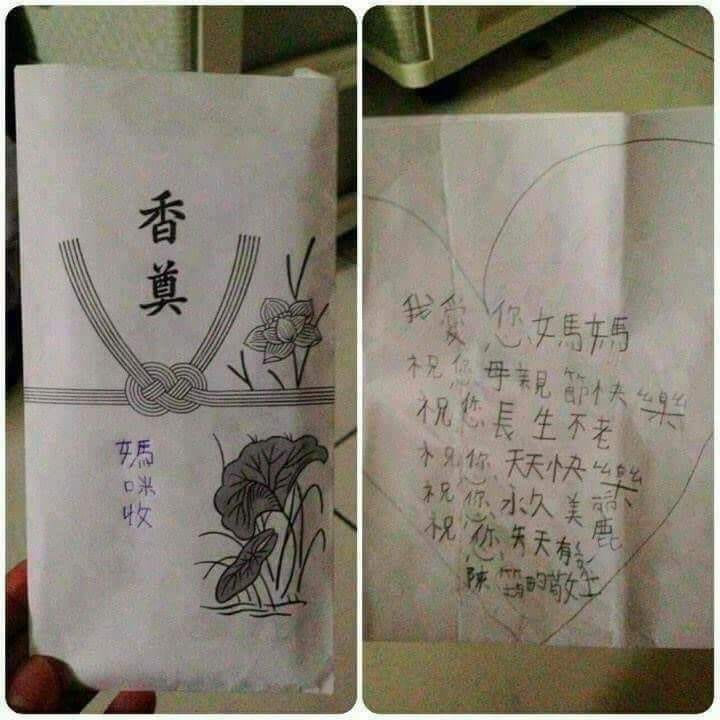 香奠
媽咪收
我愛您媽媽
祝您母親節快樂
祝您長生不老
祝您天天快樂
祝您永久美麗
祝您天天有
敬上